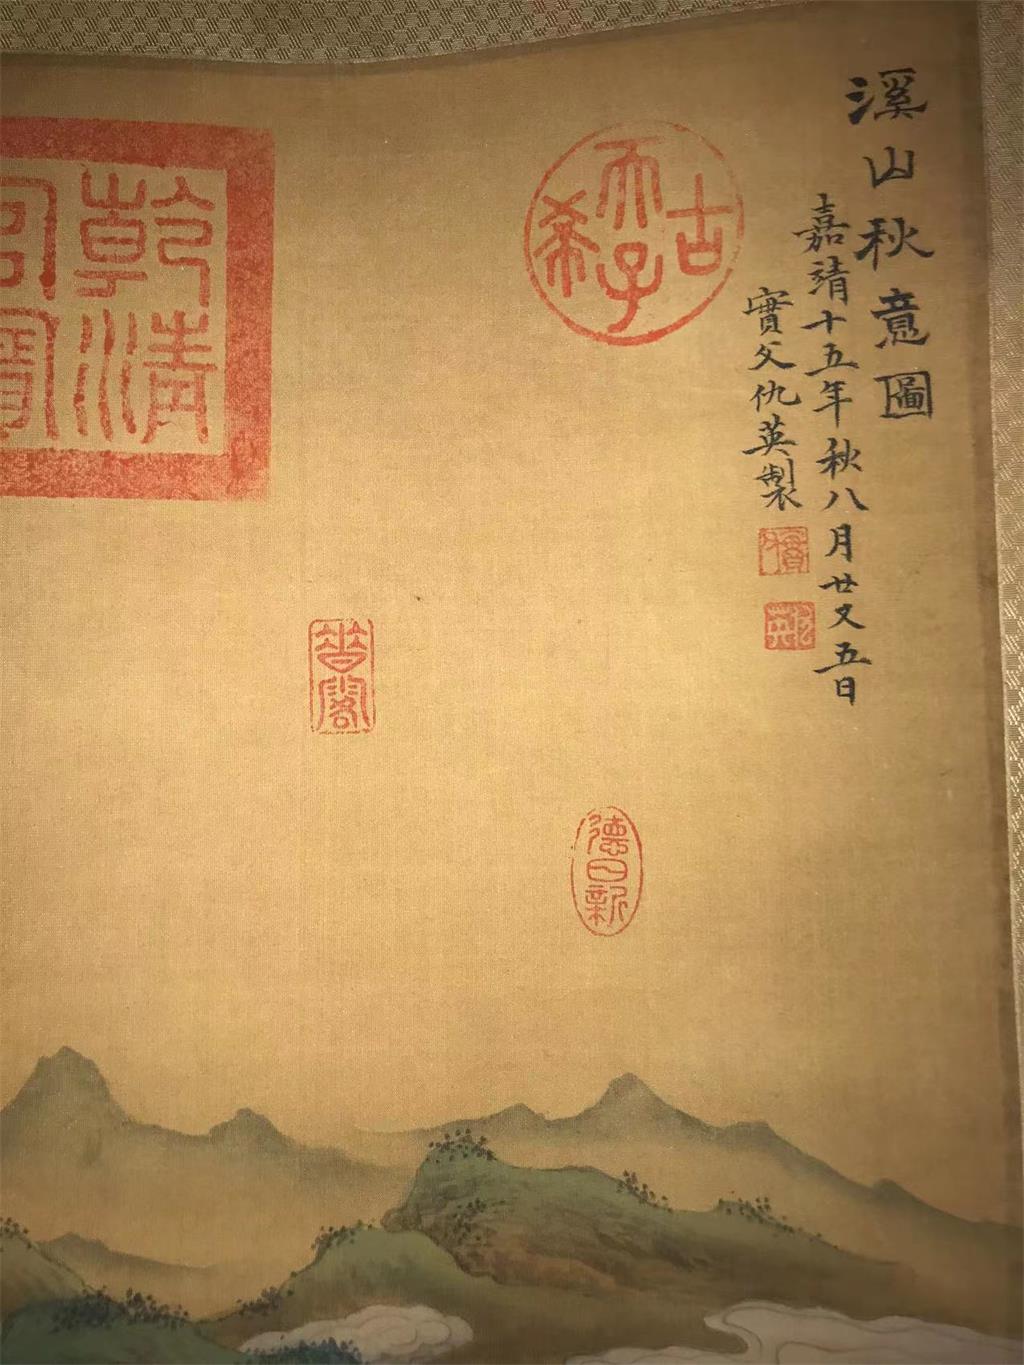 溪山秋意圖
嘉靖十五年秋八月廿又五日
實父仇英製
實父
仇英
古希天子
乾清
德日新